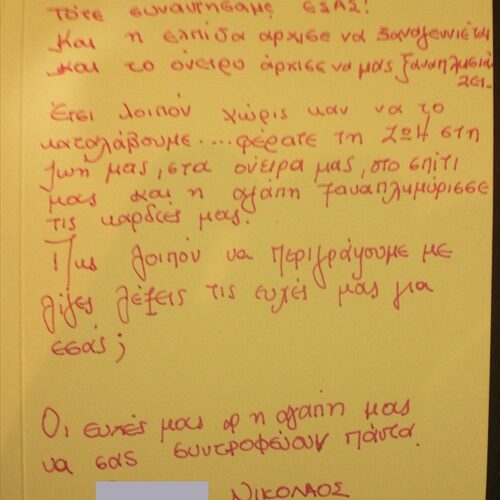 Τότε συναντήσαμε ΕΣΑΣ!
Και η ελπίδα άρχισε να ξαναγεννιέται
και το όνειρο άρχισε να μας ξαναπλησιά
ζει.
Έτσι λοιπόν χωρίς καν να το
καταλάβουμε....φέρατε τη ΖΩΗ στη
ζωή μας, στα όνειρα μας, στο σπίτι
μας και η αγάπη ξαναπλημύρισσε
τις καρδιές μας.
Πως λοιπόν να περιγράψουμε με
λίγες λέξεις τις ευχές μας για
εσάς;
Οι ευχές μας & η αγάπη μας
να σας συντροφεύουν πάντα.
ΝΙΚΟΛΑΟΣ